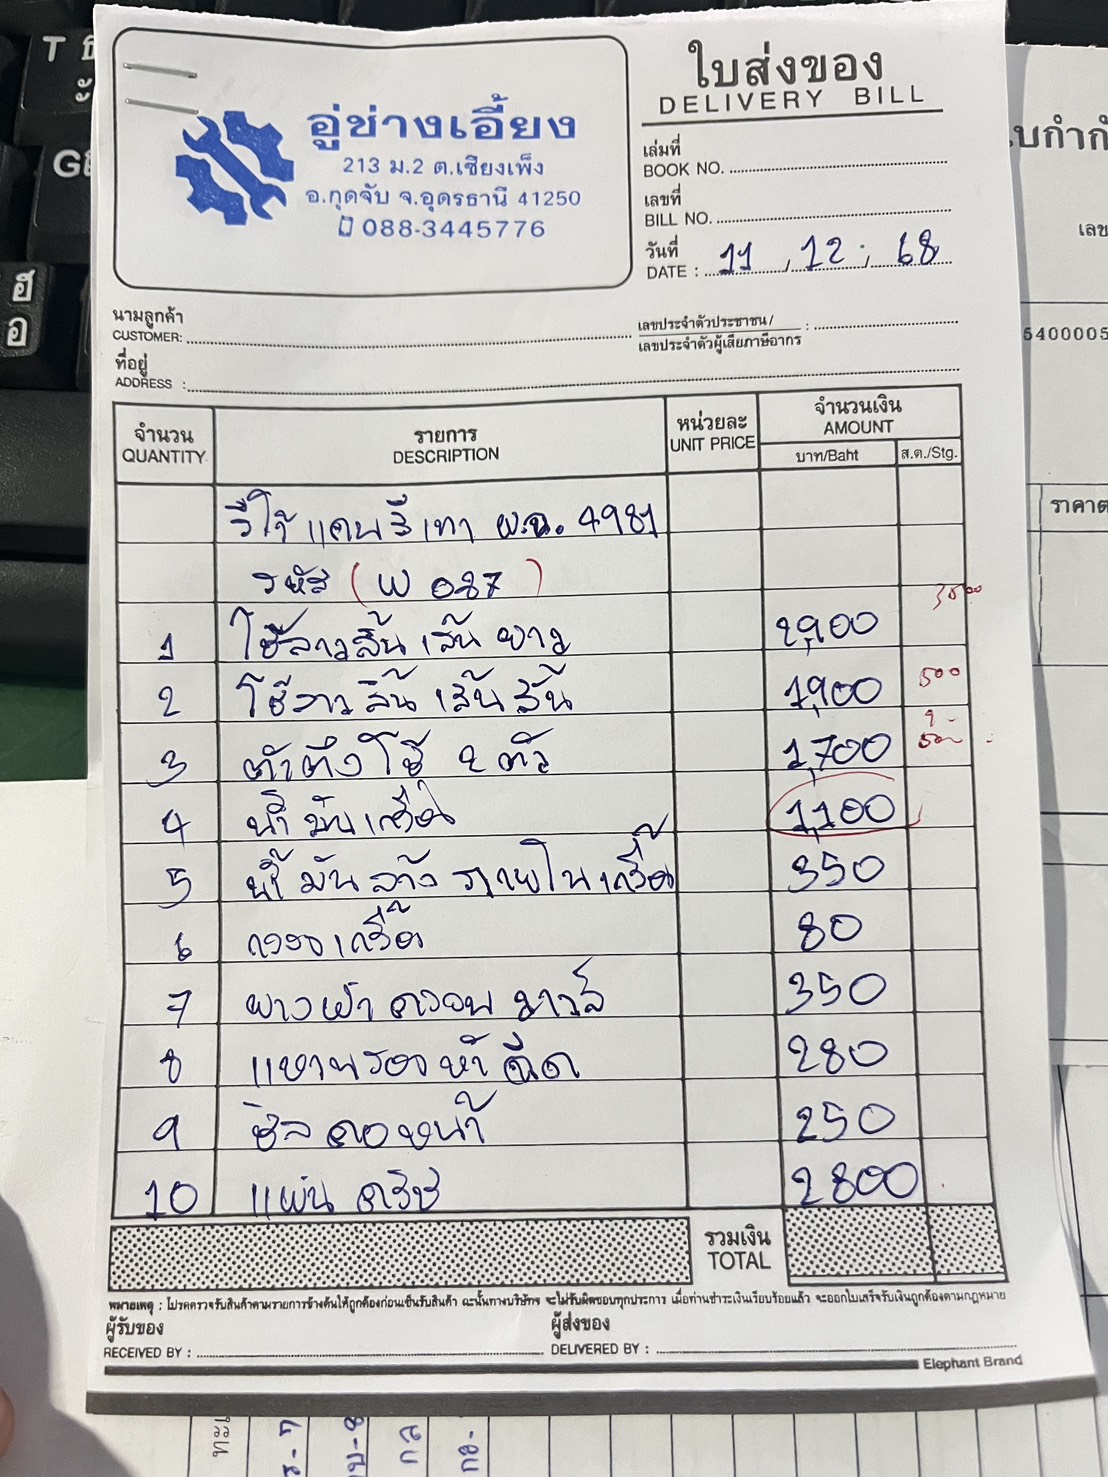 ใบส่งของ
DELIVERY BILL
อู่ช่างเอี้ยง
213 ม.2 ต.เชียงเพ็ง
อ.กุดจับ จ.อุดรธานี 41250
088-3445776
เล่มที่
BOOK NO.
เลขที่
BILL NO.
วันที่
DATE : 11, 12; 68
นามลูกค้า
CUSTOMER:
เลขประจำตัวประชาชน/
เลขประจำตัวผู้เสียภาษีอากร :
ที่อยู่
ADDRESS :
จำนวน
QUANTITY
รายการ
DESCRIPTION
หน่วยละ
UNIT PRICE
จำนวนเงิน
AMOUNT
บาท/Baht ส.ต./Stg.
วีโก้ แคบสีเทา ผ.ฉ. 4981
รหัส (W 027)
1 โซ่ลาวลิ้น เส้น ยาว 2,900
2 โซ่ลาวลิ้น เส้นสั้น 1,900 500
3 ตัวตึงโซ่ 2 ตัว 1,700
4 น้ำมันเครื่อง 1,100
5 น้ำมันล้างภายในเครื่อง 350
6 กรองเครื่อง 80
7 ยางฝาครอบวาวล์ 350
8 แหวนรองหัวฉีด 280
9 ซิลคอหน้า 250
10 แผ่นครัช 2800
รวมเงิน
TOTAL
หมายเหตุ : โปรดตรวจรับสินค้าตามรายการข้างต้นให้ถูกต้องก่อนเซ็นรับสินค้า ฉะนั้นทางบริษัทฯ จะไม่รับผิดชอบทุกประการ เมื่อท่านชำระเงินเรียบร้อยแล้ว จะออกใบเสร็จรับเงินถูกต้องตามกฎหมาย
ผู้รับของ
RECEIVED BY :
ผู้ส่งของ
DELIVERED BY :
Elephant Brand
T
G
ฮ
อ
เลข
6400005
ราคาต